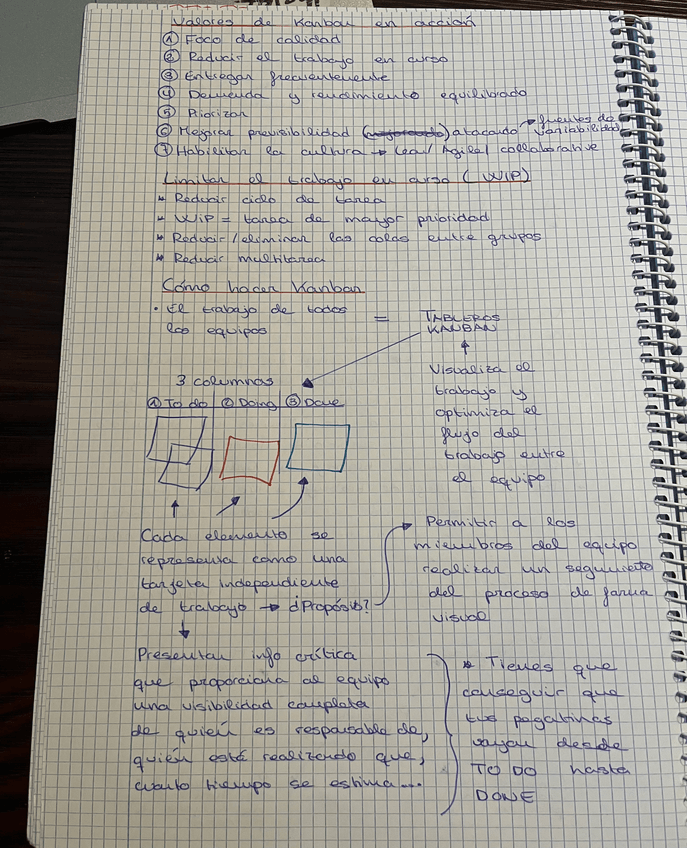 Valores de Kanban en acción
① Foco de calidad
② Reducir el trabajo en curso
③ Entregar frecuentemente
④ Demanda y rendimiento equilibrado
⑤ Priorizar
⑥ Mejorar previsibilidad atacando → fuentes de variabilidad
⑦ Habilitar la cultura → Lean/Agile/collaborative
Limitar el trabajo en curso (WIP)
* Reducir ciclo de tarea
* WIP = tarea de mayor prioridad
* Reducir/eliminar las colas entre grupos
* Reducir multitarea
Cómo hacer Kanban
• El trabajo de todos
los equipos
= TABLEROS
KANBAN
Visualiza el
trabajo y
optimiza el
flujo del
trabajo entre
el equipo
3 columnas
① To do ② Doing ③ Done
Cada elemento se
representa como una
tarjeta independiente
de trabajo → ¿Propósito?
Permitir a los
miembros del equipo
realizar un seguimiento
del proceso de forma
visual
Presentan info crítica
que proporciona al equipo
una visibilidad completa
de quién es responsable de,
quién está realizando que,
cuanto tiempo se estima...
* Tienes que
conseguir que
tus pegatinas
vayan desde
TO DO hasta
DONE